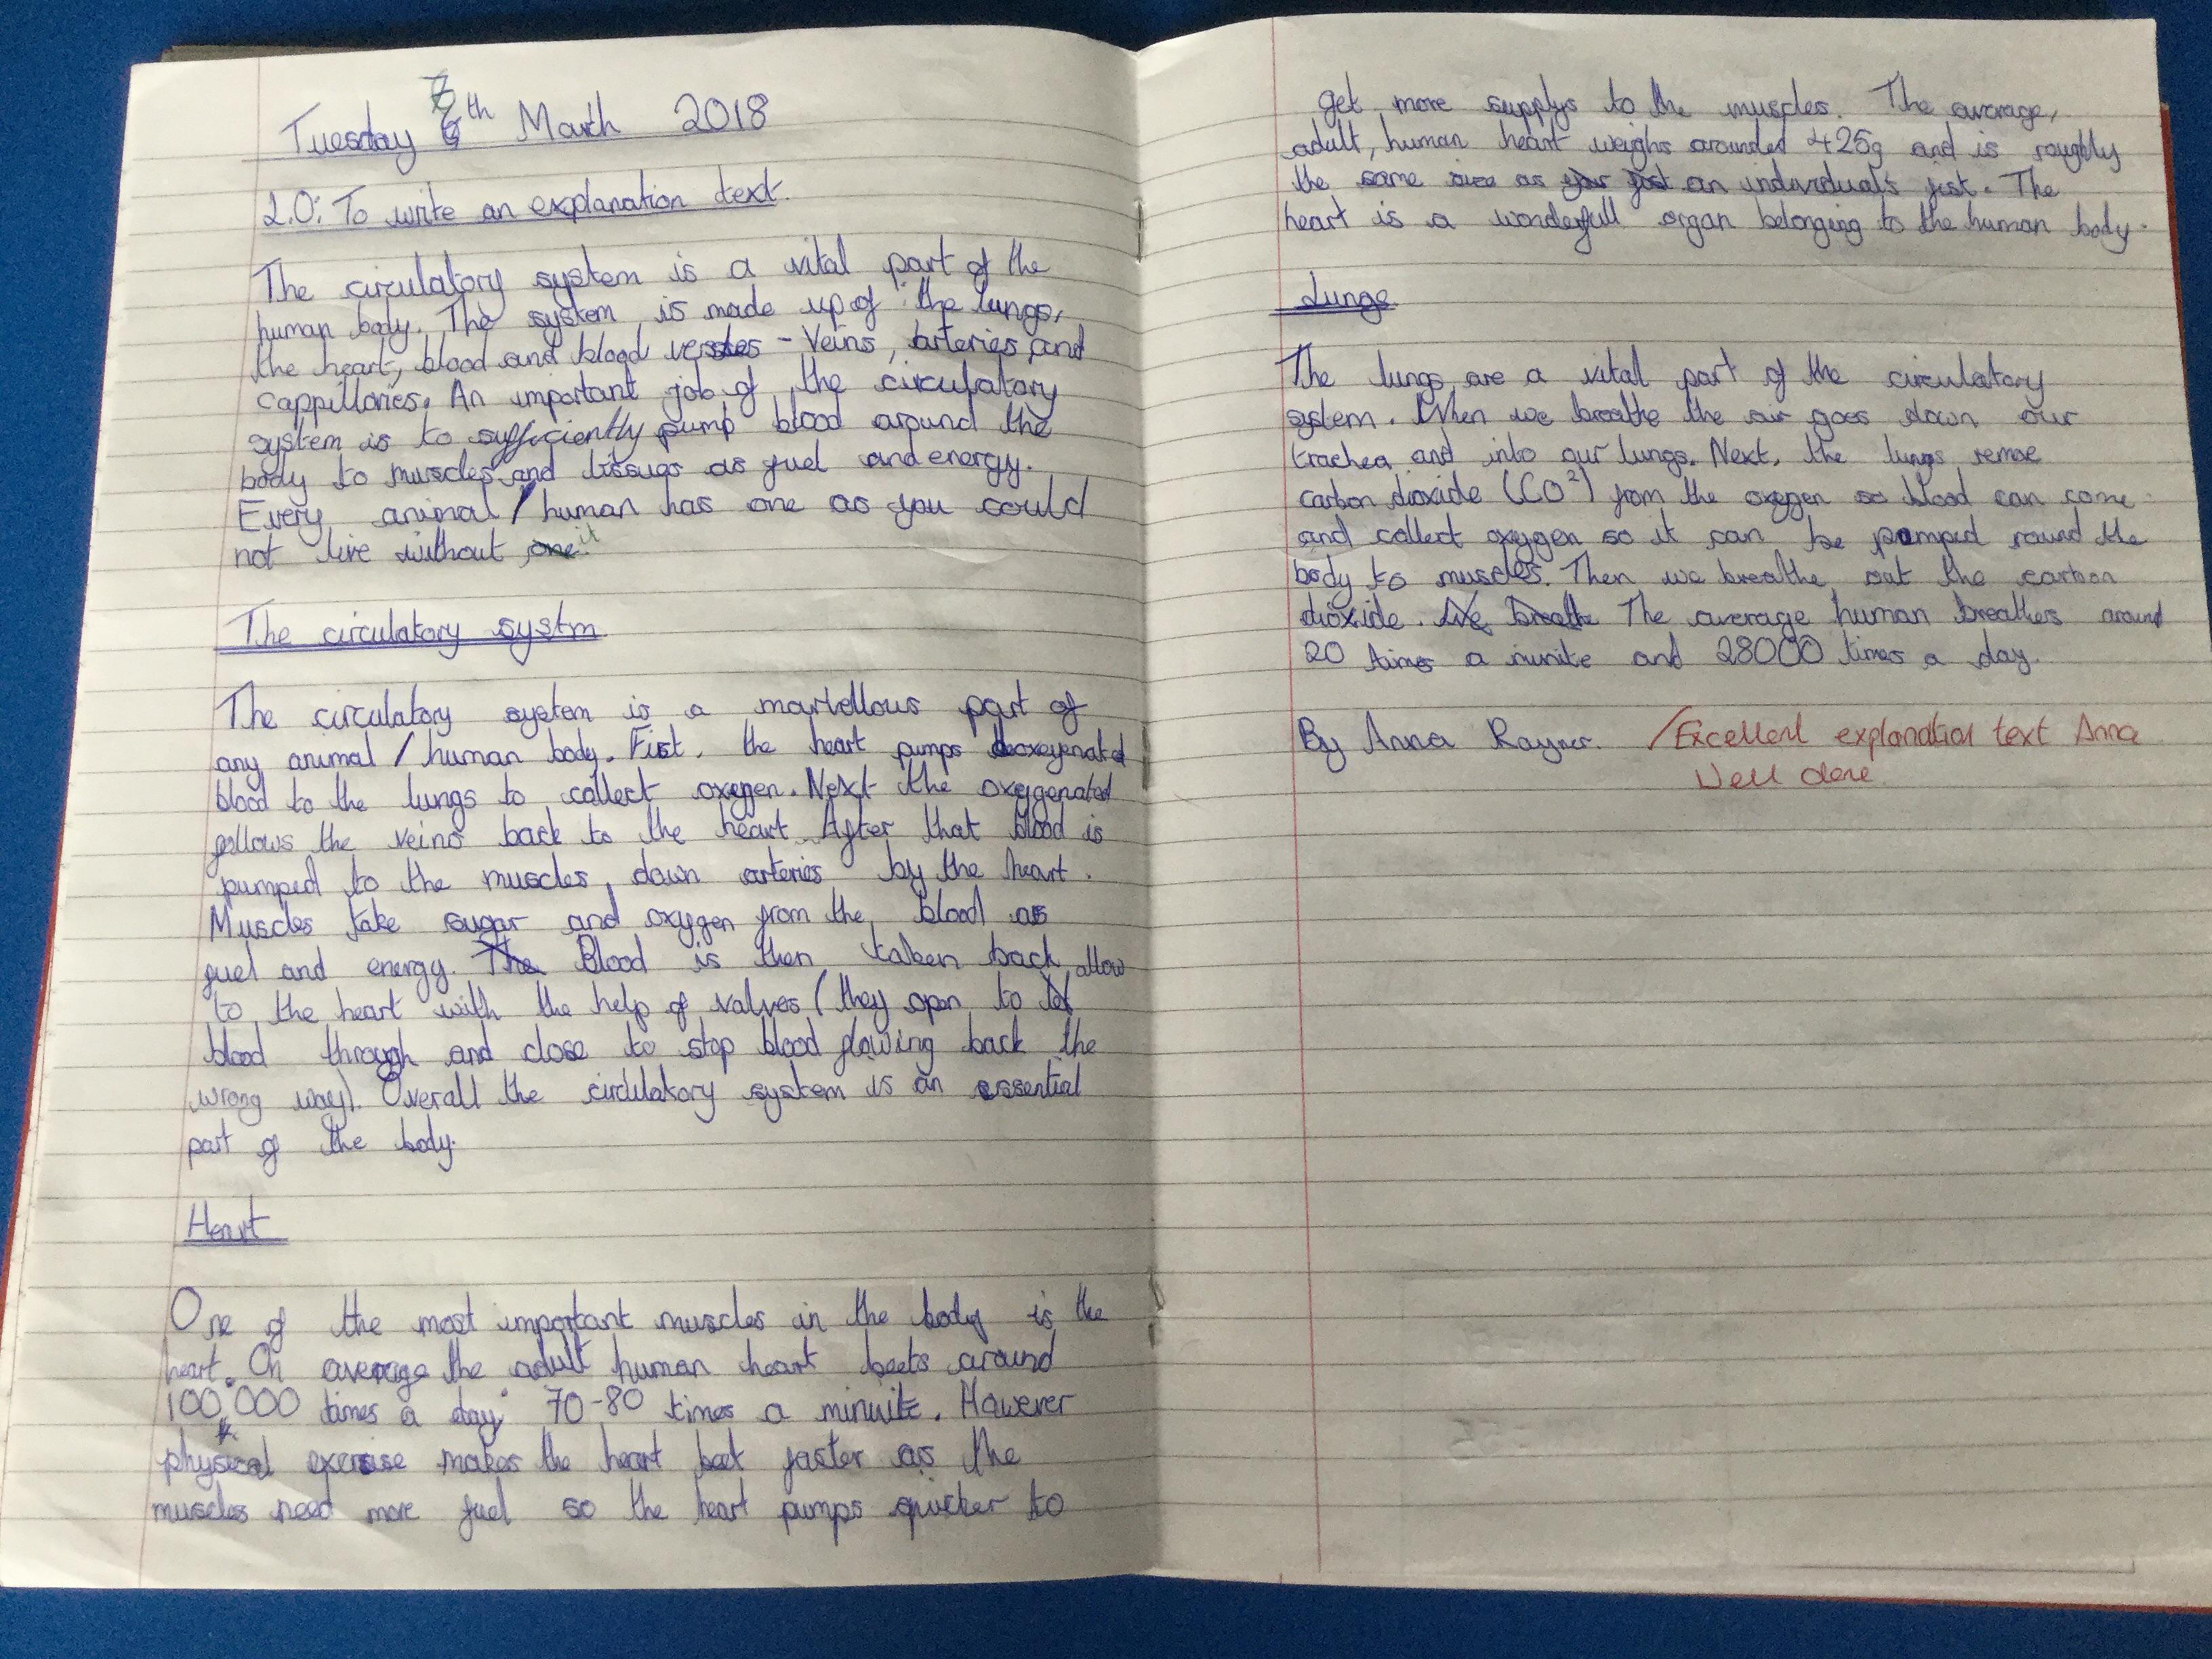 Tuesday 6th March 2018
L.O: To write an explanation text.
The circulatory system is a vital part of the
human body. The system is made up of the lungs,
the heart, blood and blood - Veins, arteries and
cappillories. An important job of the circulatory
system is to sufficiently pump blood around the
body to muscles and tissues as fuel and energy.
Every animal / human has one as you could
not live without one it
The circulatory systm
The circulatory system is a marvellous part of
any animal / human body. First, the heart pumps deoxeyenated
blood to the lungs to collect oxegen. Next the oxeygenated
follows the veins back to the heart. After that blood is
pumped to the muscles, down arteries by the heart.
Muscles take sugar and oxygen from the blood as
fuel and energy. The Blood is then taken back allow
to the heart with the help of valves (they open to let
blood through and close to stop blood flowing back the
wrong way). Overall the circulatory system is an essential
part of the body.
Heart
One of the most important muscles in the body is the
heart. On average the adult human heart beets around
100,000 times a day 70-80 times a minuite. However
physical exersise makes the heart beet faster as the
muscles need more fuel so the heart pumps quicker to
get more supplys to the muscles. The average,
adult, human heart weighs arounded 425g and is roughly
the same size as your fist an individuals fist. The
heart is a wonderfull organ belonging to the human body.
Lungs
The lungs are a vital part of the circulatory
system. When we breathe the air goes down our
trachea and into our lungs. Next, the lungs remoe
carbon dioxide (CO²) from the oxegen so blood can come
and collect oxygen so it can be pomped round the
body to muscles. Then we breathe out the carbon
dioxide. We breath The average human breathes around
20 times a munite and 28000 times a day.
By Anna Rayner. Excellent explanation text Anna
Well done.